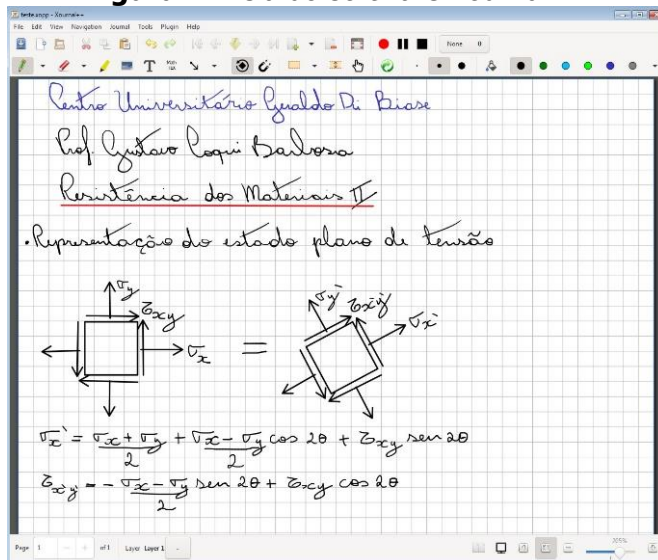 teste.xopp - Xournal++
File Edit View Navigation Journal Tools Plugin Help
None
Centro Universitário Geraldo Di Biase
Prof. Gustavo Coqui Barbosa
Resistência dos Materiais II
• Representação do estado plano de tensão
σy
τxy
σx
=
σy'
τx'y'
σx'
σx' = σx + σy / 2 + σx - σy / 2 cos 2θ + τxy sen 2θ
τx'y' = - σx - σy / 2 sen 2θ + τxy cos 2θ
Page 1 of 1 Layer Layer 1
205%